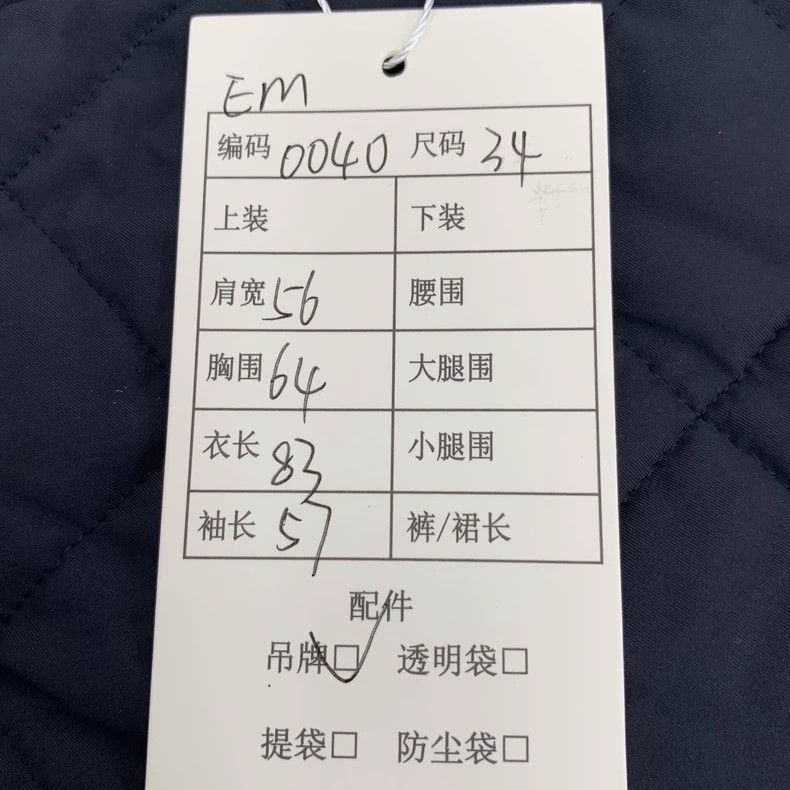 EM
编码 0040 尺码 34
上装 下装
肩宽 56 腰围
胸围 64 大腿围
衣长 83 小腿围
袖长 57 裤/裙长
配件
吊牌□ 透明袋□
提袋□ 防尘袋□